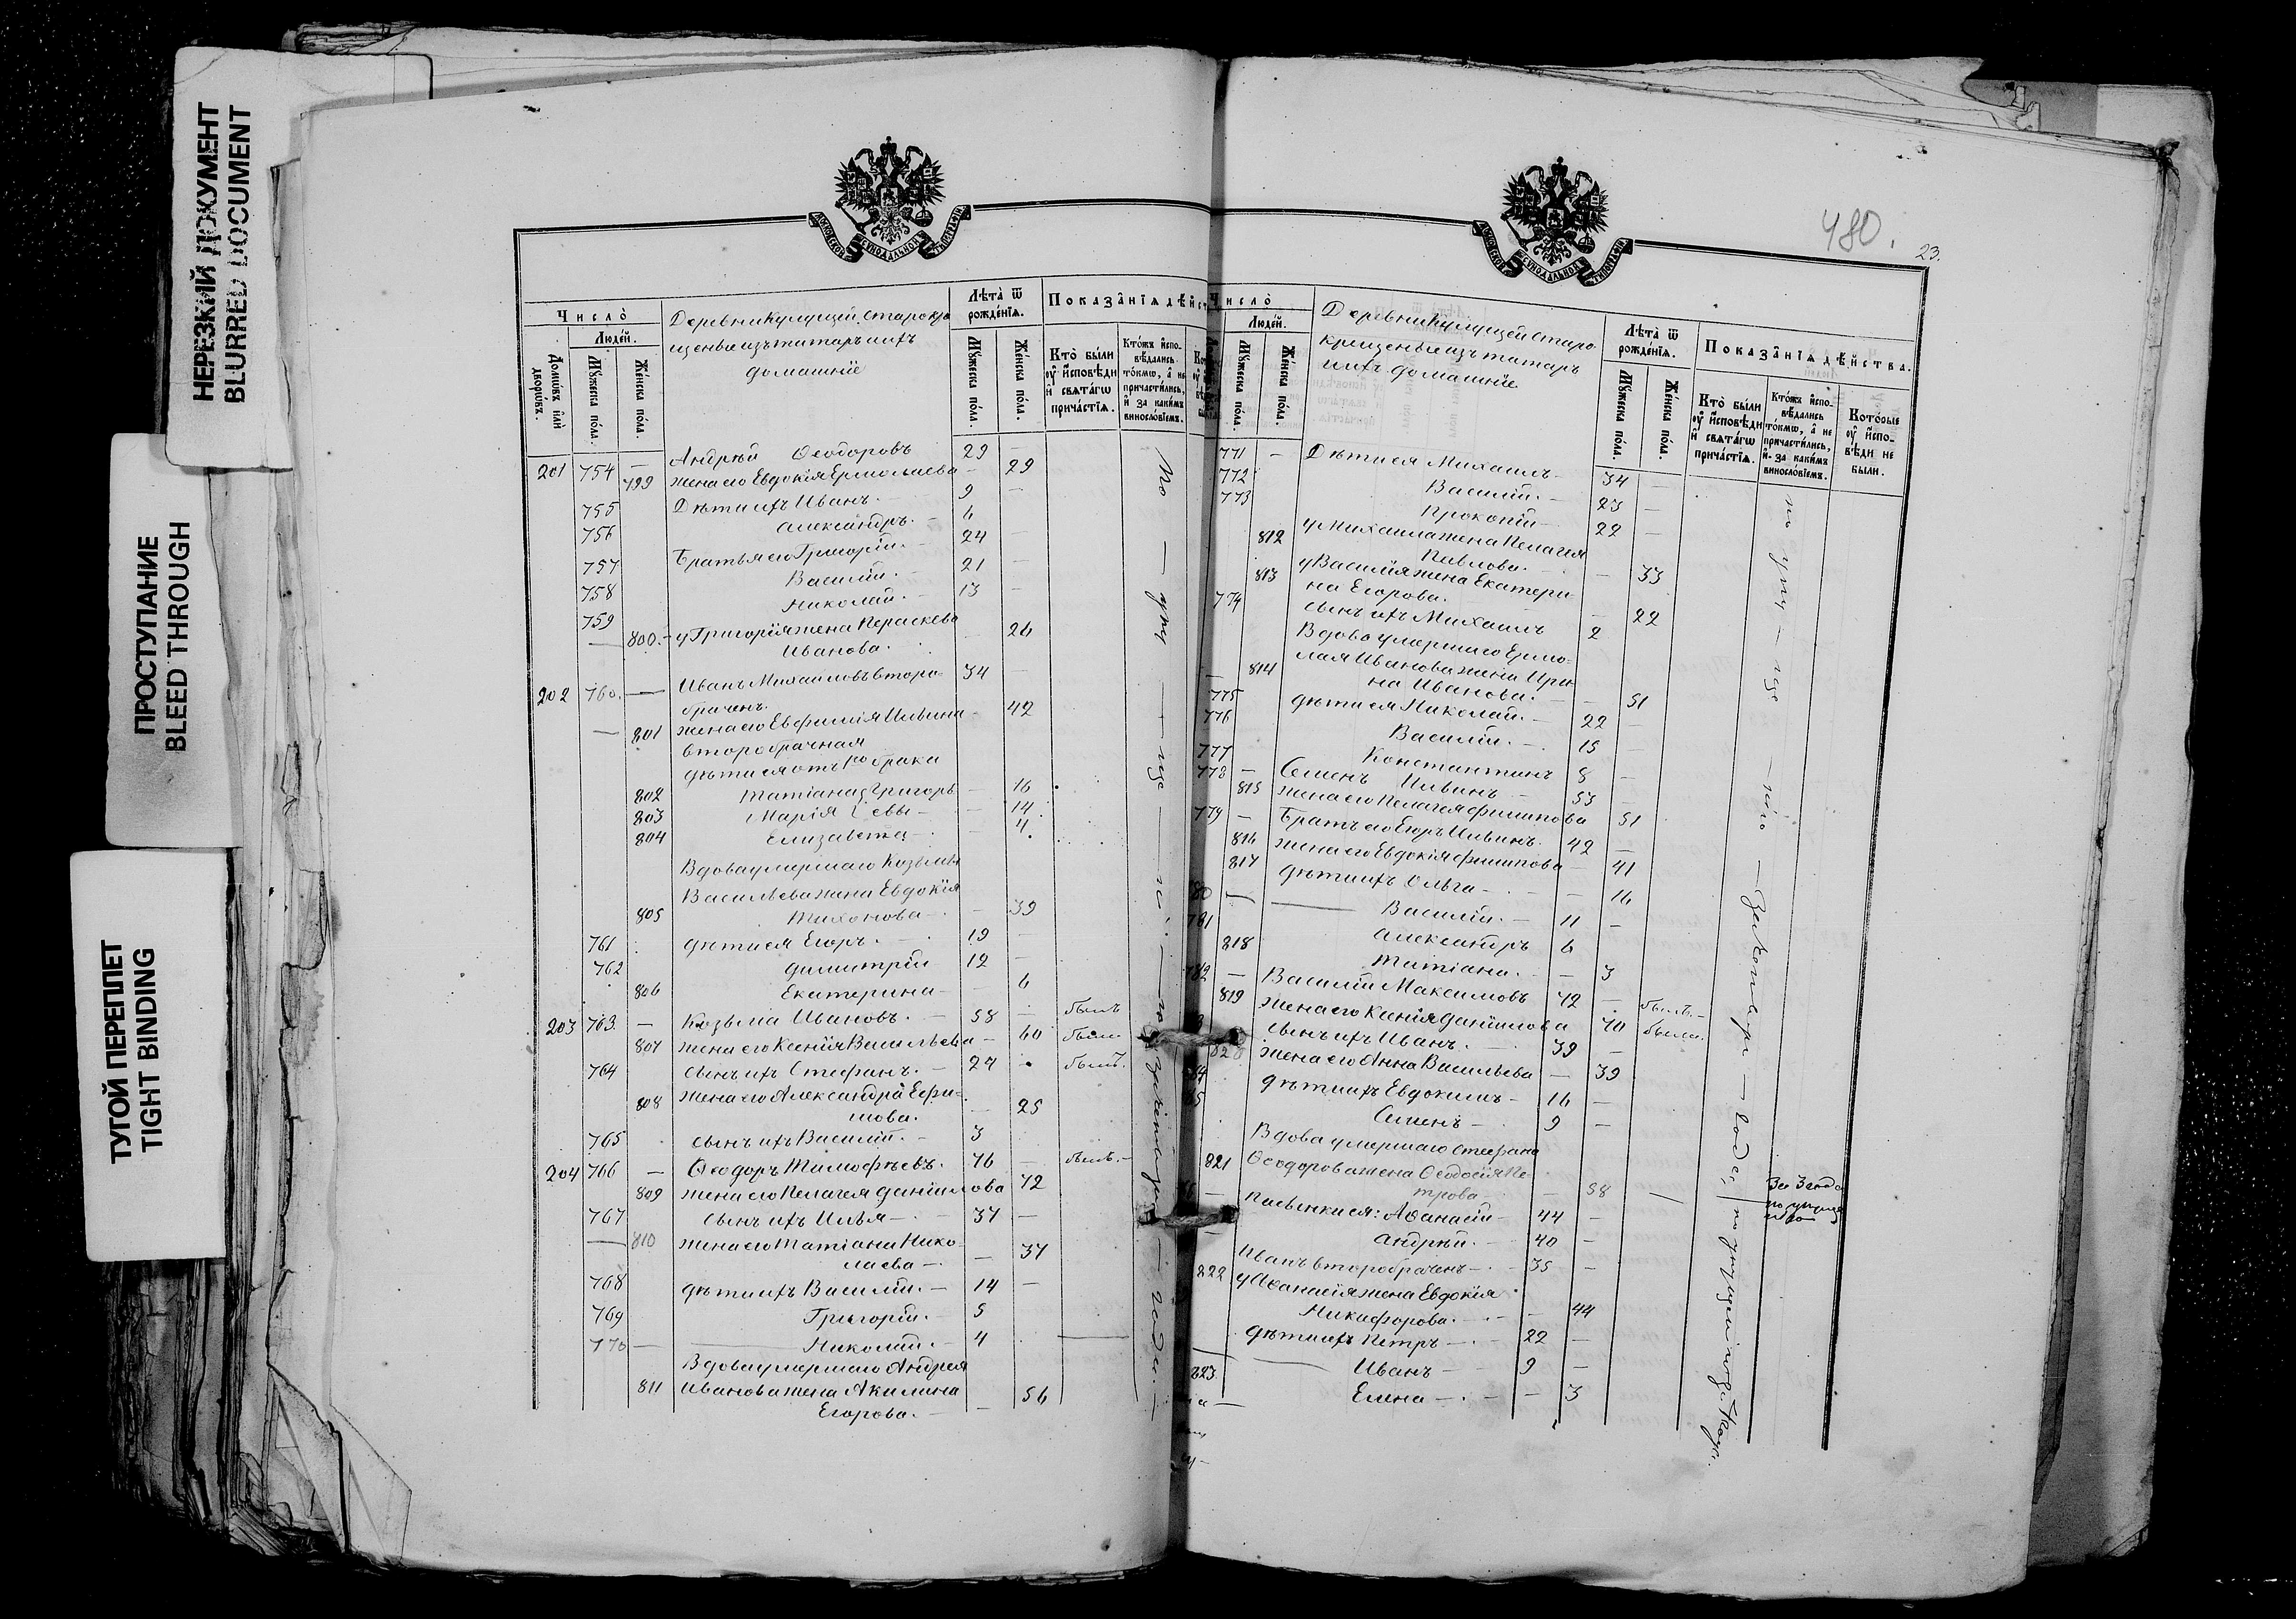 НЕРЕЗКИЙ ДОКУМЕНТ
BLURRED DOCUMENT
ПРОСТУПАНИЕ
BLEED THROUGH
ТУГОЙ ПЕРЕПЛЕТ
TIGHT BINDING
МОСКОВСКОЙ СѴНОДАЛЬНОЙ ТИПОГРАФІИ
Число̀
Людей.
Домѡвъ и҆лѝ дворѡвъ.
Мꙋжеска пола.
Женска пола.
Деревни старокре
щеные изъ татаръ и ихъ
домашніе
Лѣта̀ ѿ рожденїѧ.
Мꙋжеска пола.
Женска пола.
Показанїѧ дѣйст
Кто̀ были ᲂу҆ и҆сповѣди и҆ свѧтагѡ причастїѧ.
Ктожъ и҆споведались токмѡ, а҆ не причастились, и҆ за какимъ винословїемъ.
201 754 — Андрей Ѳеодоровъ 29 —
799 жена его Евдокія Ермолаева — 29
755 Дѣти ихъ Иванъ. — 9 —
756 Александръ. — 6
757 Братья его Григорій. — 24 —
758 Василій. — 21 —
759 Николай. — 13 —
— 800. — у Григорія жена Параскева
Иванова. 26
202 760. — Иванъ Михайловъ второ-
браченъ. 34 —
— 801 жена его Евфимія Ильина — 42
второбрачная
дѣти ея отъ 1го брака
802 Татіана Григорь — 16
803 Марія евы — 14
804 Елизавета — 4.
Вдова умершаго Козьмы
Васильева жена Евдокія
805 Тихонова — — 39
761 дѣти ея Егоръ. — 19 —
762 Димитрій 12 —
806 Екатерина — — 6
203 763 — Козьма Ивановъ. — 58 — былъ
807 жена его Ксенія Васильева — 60 была
764 сынъ ихъ Стефанъ. — 27 былъ.
808 жена его Александра Ефи-
мова. — 25
765 сынъ ихъ Василій. — 3
204 766 — Ѳеодоръ Тимофѣевъ. 76 — былъ. —
809 жена его Пелагея Даніилова 72
767 сынъ ихъ Илья — 37 —
— 810 жена его Татіана Нико-
лаева — — 37
768 дѣти ихъ Василій. — 14 —
769 Григорій. — 5
770 — Николай. — 4
Вдова умершаго Андрея
811 Иванова жена Акилина
Егорова. — — 56
480.
23.
МОСКОВСКОЙ СѴНОДАЛЬНОЙ ТИПОГРАФІИ
Число̀
Людей.
Мꙋжеска пола.
Женска пола.
Деревни старо
крещеные изъ татаръ
и ихъ домашніе
Лѣта̀ ѿ рожденїѧ.
Мꙋжеска пола.
Женска пола.
Показанїѧ дѣйства.
Кто̀ были ᲂу҆ и҆сповѣди и҆ свѧтагѡ причастїѧ.
Ктожъ и҆споведались токмѡ, а҆ не причастились, и҆ за какимъ винословїемъ.
Которые ᲂу҆ и҆сповѣди не были.
771 — Дѣти ея Михаилъ — 34 —
772 Василій. — 23 —
773 Прокопій — 22 —
812 у Михаила жена Пелагея
Павлова. — — 33
813 у Василія жена Екатери-
на Егорова. — 22
774 сынъ ихъ Михаилъ 2
Вдова умершаго Ермо-
лая Иванова жена Ири-
814 на Иванова. — — 51
775 дѣти ея Николай. — 22 —
776 Василій. — 15 —
777 Константинъ 8 —
778 — Семенъ Ильинъ — 53 —
815 жена его Пелагея Филипова 51
779 — Братъ его Егоръ Ильинъ. 42 —
816 жена его Евдокія Филипова — 41
817 дѣти ихъ Ольга — — 16
80 — Василій. — 11 —
781 Александръ 6
818 Татіана. — — 3
782 — Василій Максимовъ 72 — былъ. —
819 жена его Ксенія Даніилова 70 была.
сынъ ихъ Иванъ. 39 —
820 жена его Анна Васильева — 39
84 дѣти ихъ Евдокимъ — 16 —
85 Семенъ — 9 —
Вдова умершаго Стефана
821 Ѳеодорова жена Ѳеодосія Пе-
трова — 58
пасынки ея: Аѳанасій — 44 —
Андрей. — 40 —
Иванъ второбраченъ — 35 —
822 у Аѳанасія жена Евдокія
Никифорова. — — 44
дѣти ихъ Петръ — 22 —
Иванъ — 9 —
823 Елена — — 3